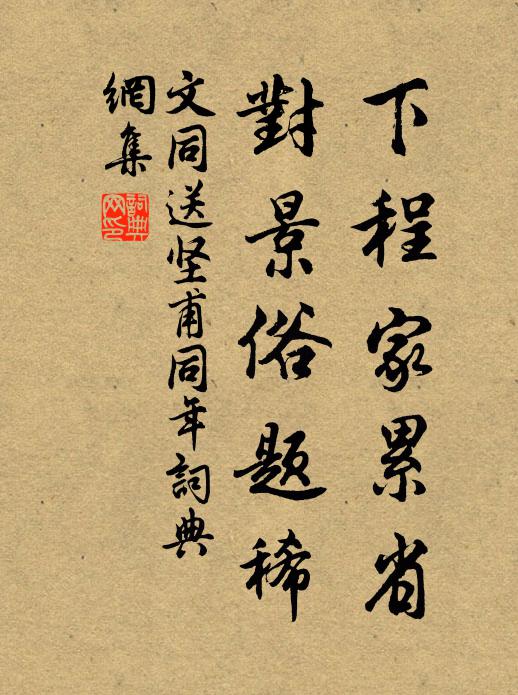 下程家累省
對景俗题稀
文同送坚甫同年詞典
網集
詞典
网印